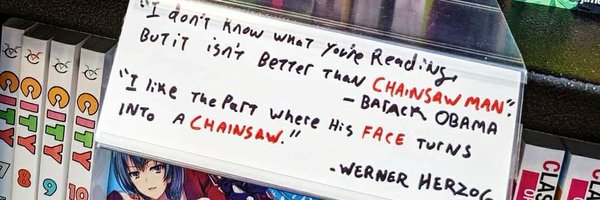 "I don't know what you're Reading,
But it isn't Better than CHAINSAW MAN".
- BARACK OBAMA
"I like the Part where His FACE turns
INTO A CHAINSAW."
- WERNER HERZOG
CITY
7
CITY
8
CITY
9
CITY
10
CLAS
CLASS